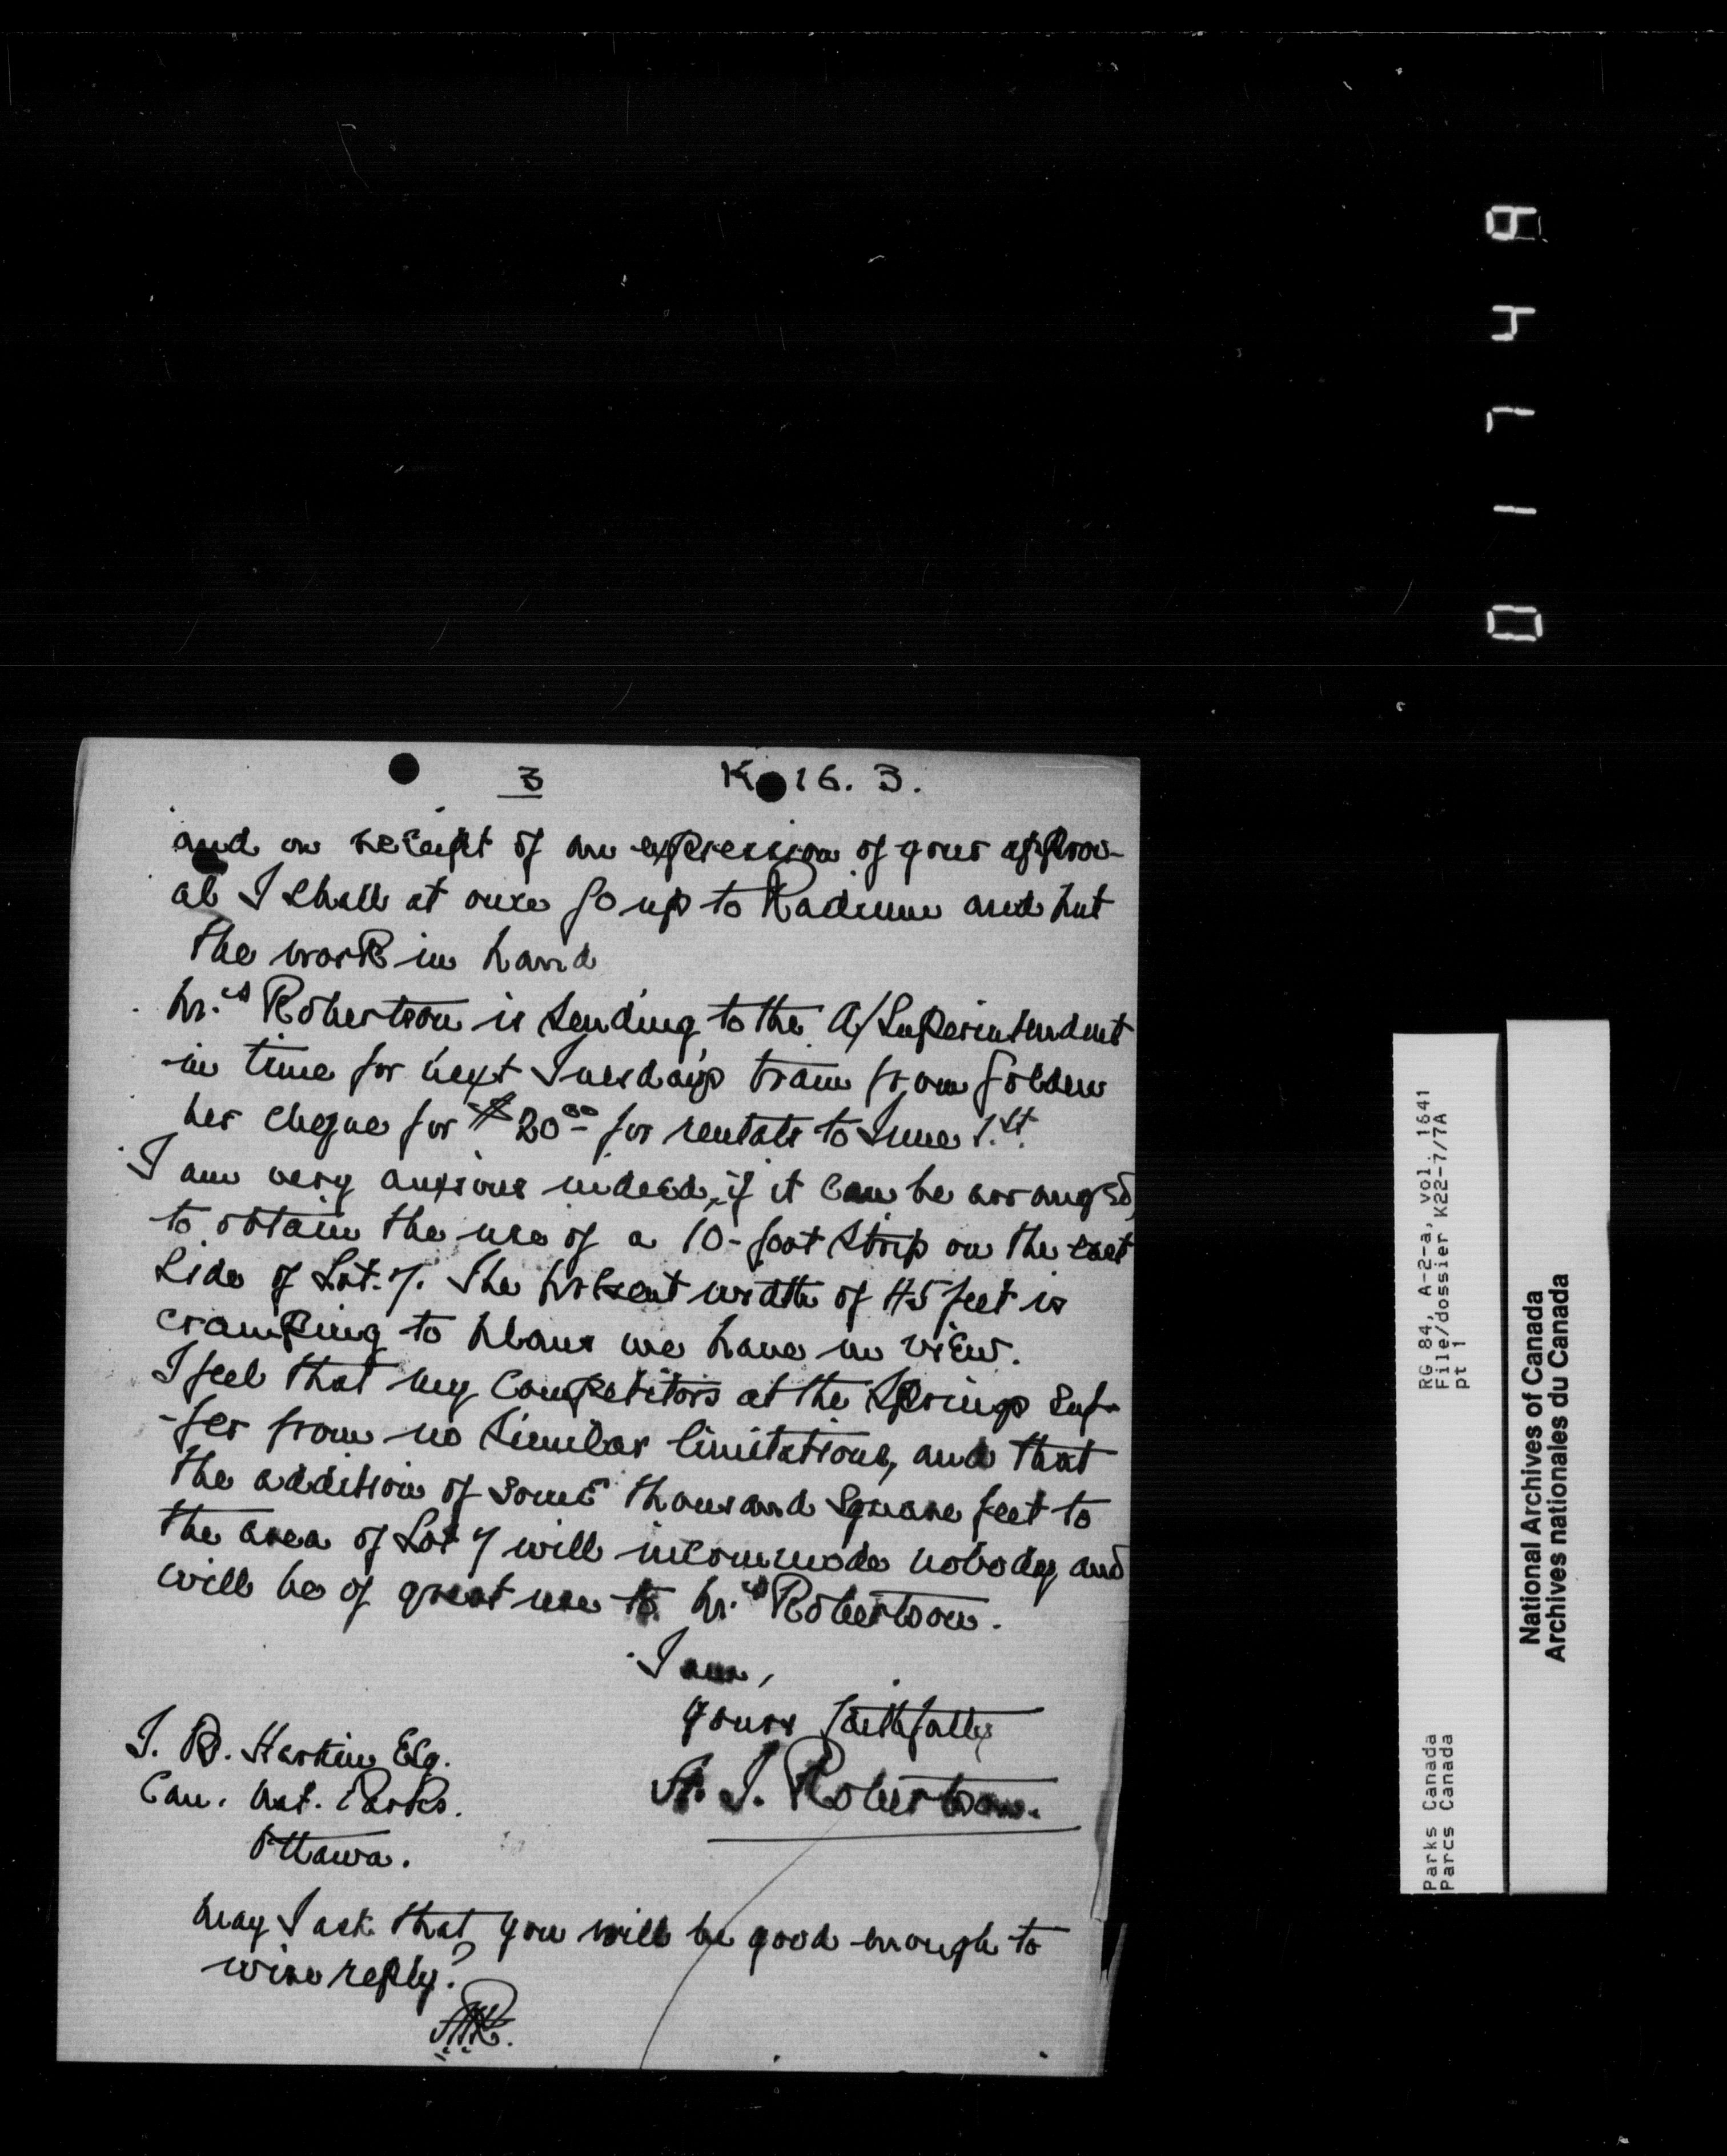 3 K 16. 3.
and on receipt of an expression of your approv-
al I shall at once go up to Radium and put
the work in hand
Mrs Robertson is sending to the A/Superintendent
in time for next Tuesday's train from Golden
her cheque for $20.00 for rentals to June 1.st.
I am very anxious indeed, if it can be arranged,
to obtain the use of a 10-foot strip on the east
side of Lot. 7. The present width of 45 feet is
cramping to plans we have in view.
I feel that my competitors at the Springs suf-
-fer from no similar limitations, and that
the addition of some thousand square feet to
the area of Lot 7 will incommode nobody, and
will be of great use to Mrs Robertson.
I am,
Yours faithfully
J. Robertson.
J. B. Harkin Esq.
Can. Nat. Parks.
Ottawa.
May I ask that you will be good enough to
wire reply?
RG 84, A-2-a, vol. 1641
File/dossier K22-7/7A
pt 1
Parks Canada
Parcs Canada
National Archives of Canada
Archives nationales du Canada